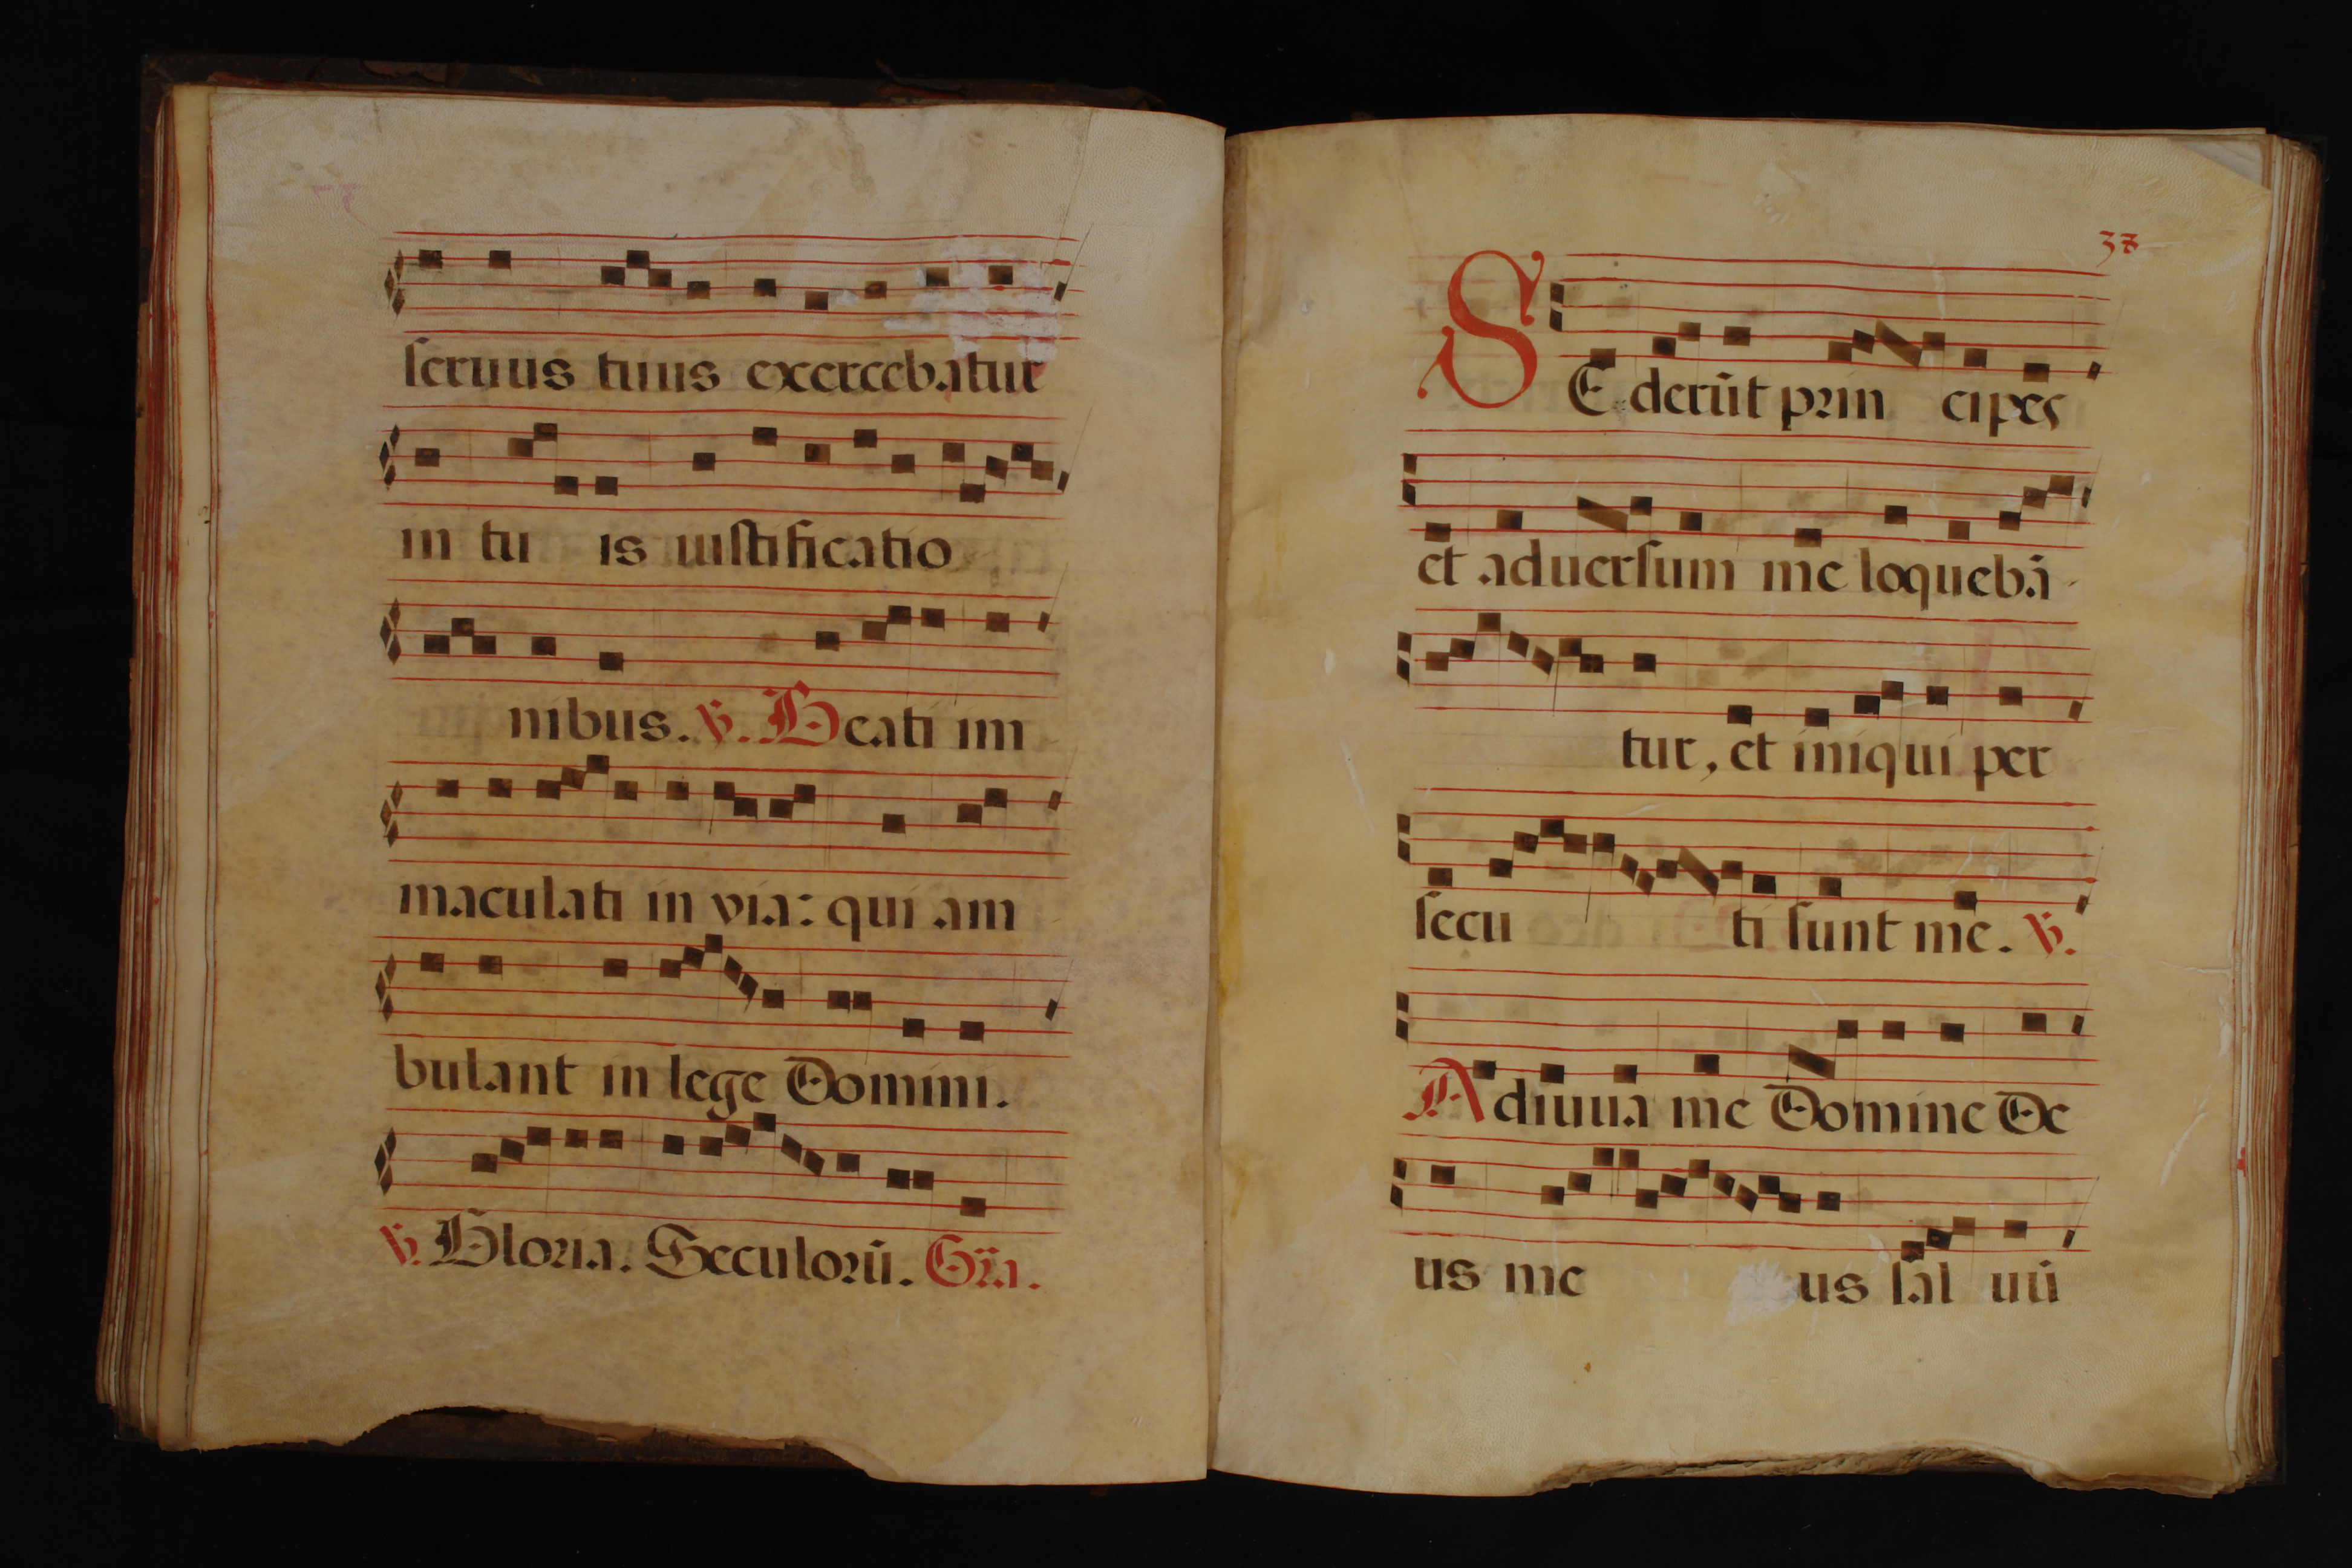 seruus tuus exercebatur
in tu is iustificatio
nibus. ℣. Beati im
maculati in via: qui am
bulant in lege Domini.
℣. Gloria. Seculorū. Gr̃a.
37
SE derūt prin cipes
et aduersum me loquebā
tur, et iniqui per
secu ti sunt me. ℣.
Adiuua me Domine De
us me us sal uū